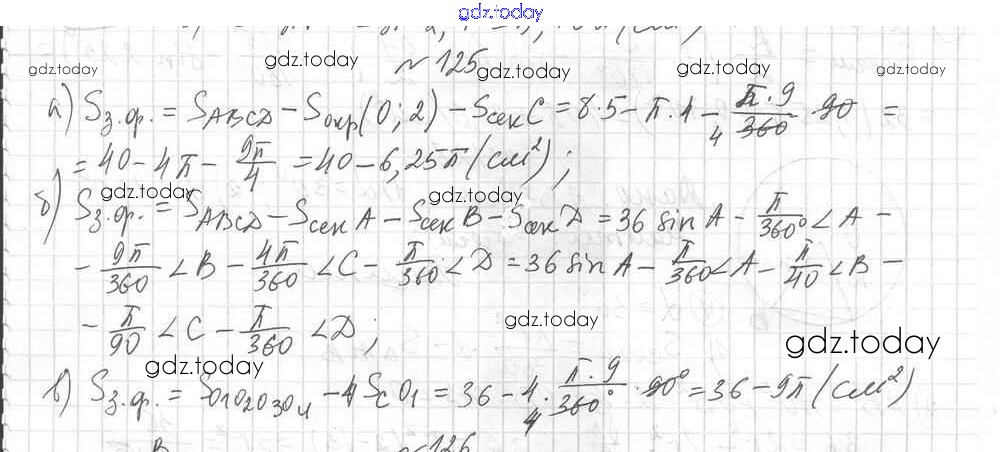 gdz.today
№ 125
gdz.today gdz.today gdz.today gdz.today gdz.today
а) Sз.ф. = SABCD − Sокр(0; 2) − Sсек C = 8·5 − π·4 − π·9/360 · 90 =
4
= 40 − 4π − 9π/4 = 40 − 6,25π (см²);
gdz.today gdz.today
б) Sз.ф. = SABCD − Sсек A − Sсек B − Sсек D = 36 sin A − π/360° ∠A −
− 9π/360 ∠B − 4π/360 ∠C − π/360 ∠D = 36 sin A − π/360 ∠A − π/40 ∠B −
− π/90 ∠C − π/360 ∠D;
gdz.today gdz.today
gdz.today
в) Sз.ф. = SO1O2O3O4 − 4SсO1 = 36 − 4· π·9/360° · 90° = 36 − 9π (см²)
4
B № 126